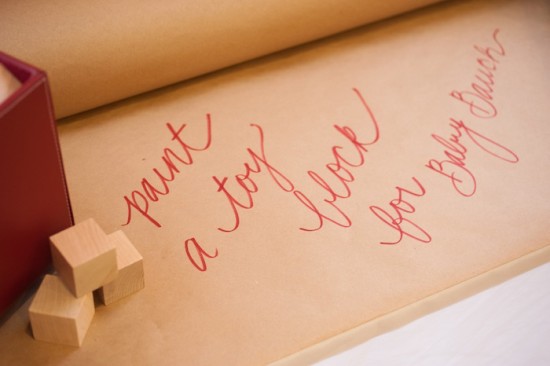 paint
a toy
block
for Baby Bauch